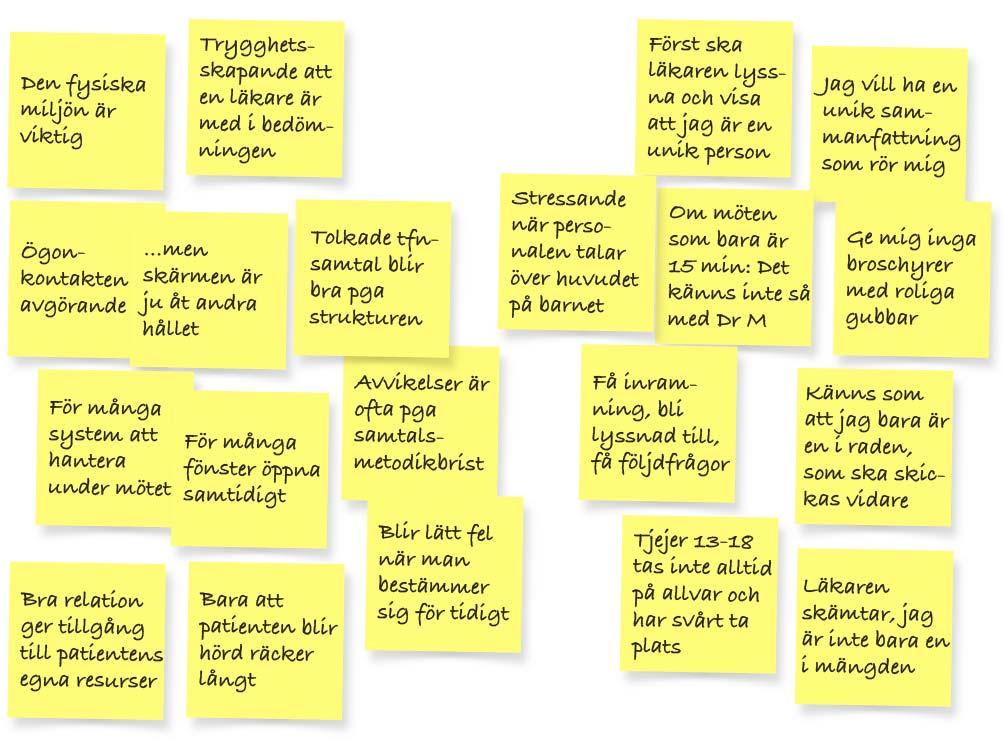 Den fysiska
miljön är
viktig
Trygghets-
skapande att
en läkare är
med i bedöm-
ningen
Ögon-
kontakten
avgörande
...men
skärmen är
ju åt andra
hållet
Tolkade tfn-
samtal blir
bra pga
strukturen
För många
system att
hantera
under mötet
För många
fönster öppna
samtidigt
Avvikelser är
ofta pga
samtals-
metodikbrist
Blir lätt fel
när man
bestämmer
sig för tidigt
Bra relation
ger tillgång
till patientens
egna resurser
Bara att
patienten blir
hörd räcker
långt
Först ska
läkaren lyss-
na och visa
att jag är en
unik person
Jag vill ha en
unik sam-
manfattning
som rör mig
Stressande
när perso-
nalen talar
över huvudet
på barnet
Om möten
som bara är
15 min: Det
känns inte så
med Dr M
Ge mig inga
broschyrer
med roliga
gubbar
Få inram-
ning, bli
lyssnad till,
få följdfrågor
Känns som
att jag bara är
en i raden,
som ska skic-
kas vidare
Tjejer 13-18
tas inte alltid
på allvar och
har svårt ta
plats
Läkaren
skämtar, jag
är inte bara en
i mängden